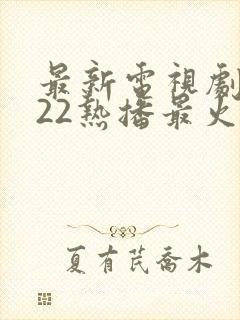 最新電視劇
22熱播最火
夏有芪喬木